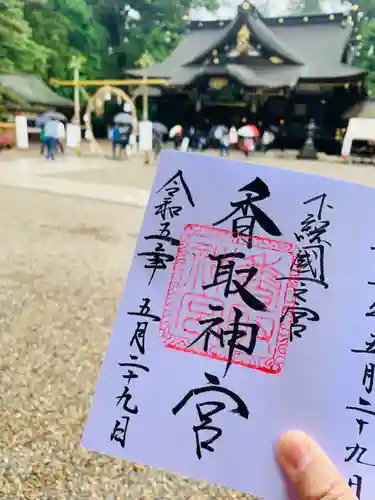 下総國一之宮
香取神宮
令和五年五月二十九日